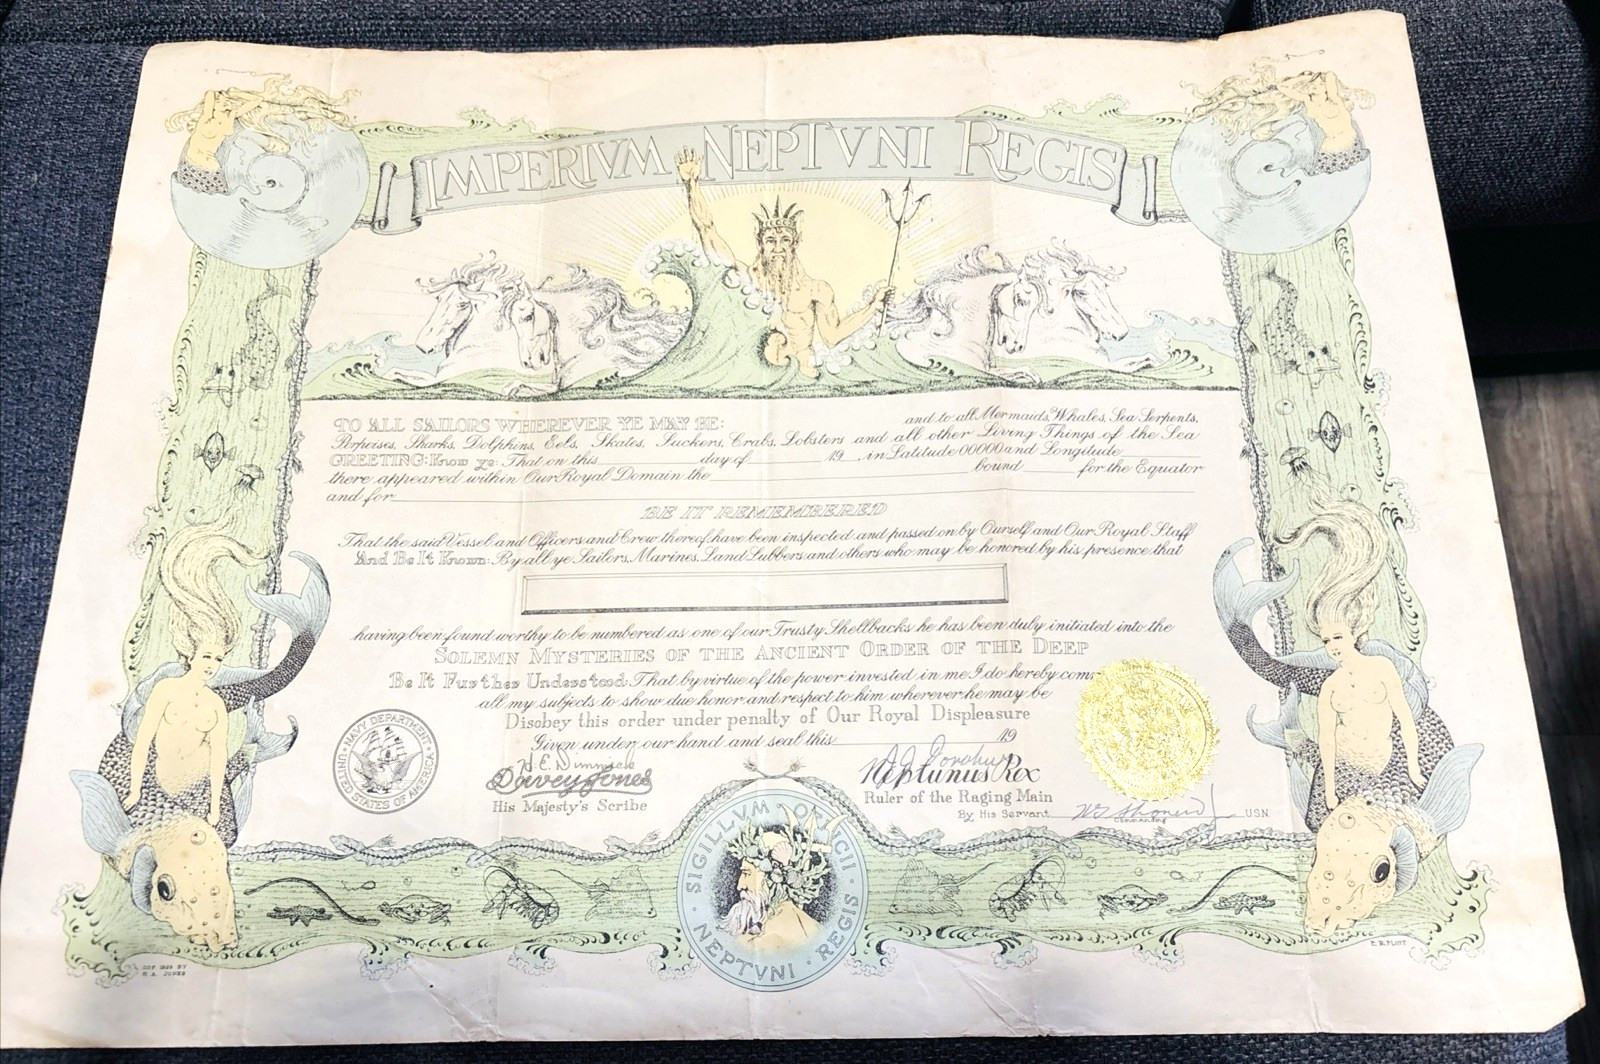 IMPERIVM NEPTVNI REGIS
TO ALL SAILORS WHEREVER YE MAY BE: and to all Mermaids, Whales, Sea Serpents,
Porpoises, Sharks, Dolphins, Eels, Skates, Suckers, Crabs, Lobsters and all other Living Things of the Sea
GREETING: Know ye: That on this day of 19 in Latitude 00000 and Longitude
there appeared within Our Royal Domain the bound for the Equator
and for
BE IT REMEMBERED
That the said Vessel and Officers and Crew thereof have been inspected and passed on by Ourself and Our Royal Staff
And Be It Known: By all ye Sailors, Marines, Land Lubbers and others who may be honored by his presence that
having been found worthy to be numbered as one of our Trusty Shellbacks he has been duly initiated into the
SOLEMN MYSTERIES OF THE ANCIENT ORDER OF THE DEEP
Be It Further Understood: That by virtue of the power invested in me I do hereby com
all my subjects to show due honor and respect to him wherever he may be
Disobey this order under penalty of Our Royal Displeasure
Given under our hand and seal this 19
NAVY DEPARTMENT
UNITED STATES OF AMERICA
Davey Jones
His Majesty's Scribe
Neptunus Rex
Ruler of the Raging Main
By His Servant USN
Commanding
SIGILLVM OFFICII
NEPTVNI REGIS
E. R. FLINT